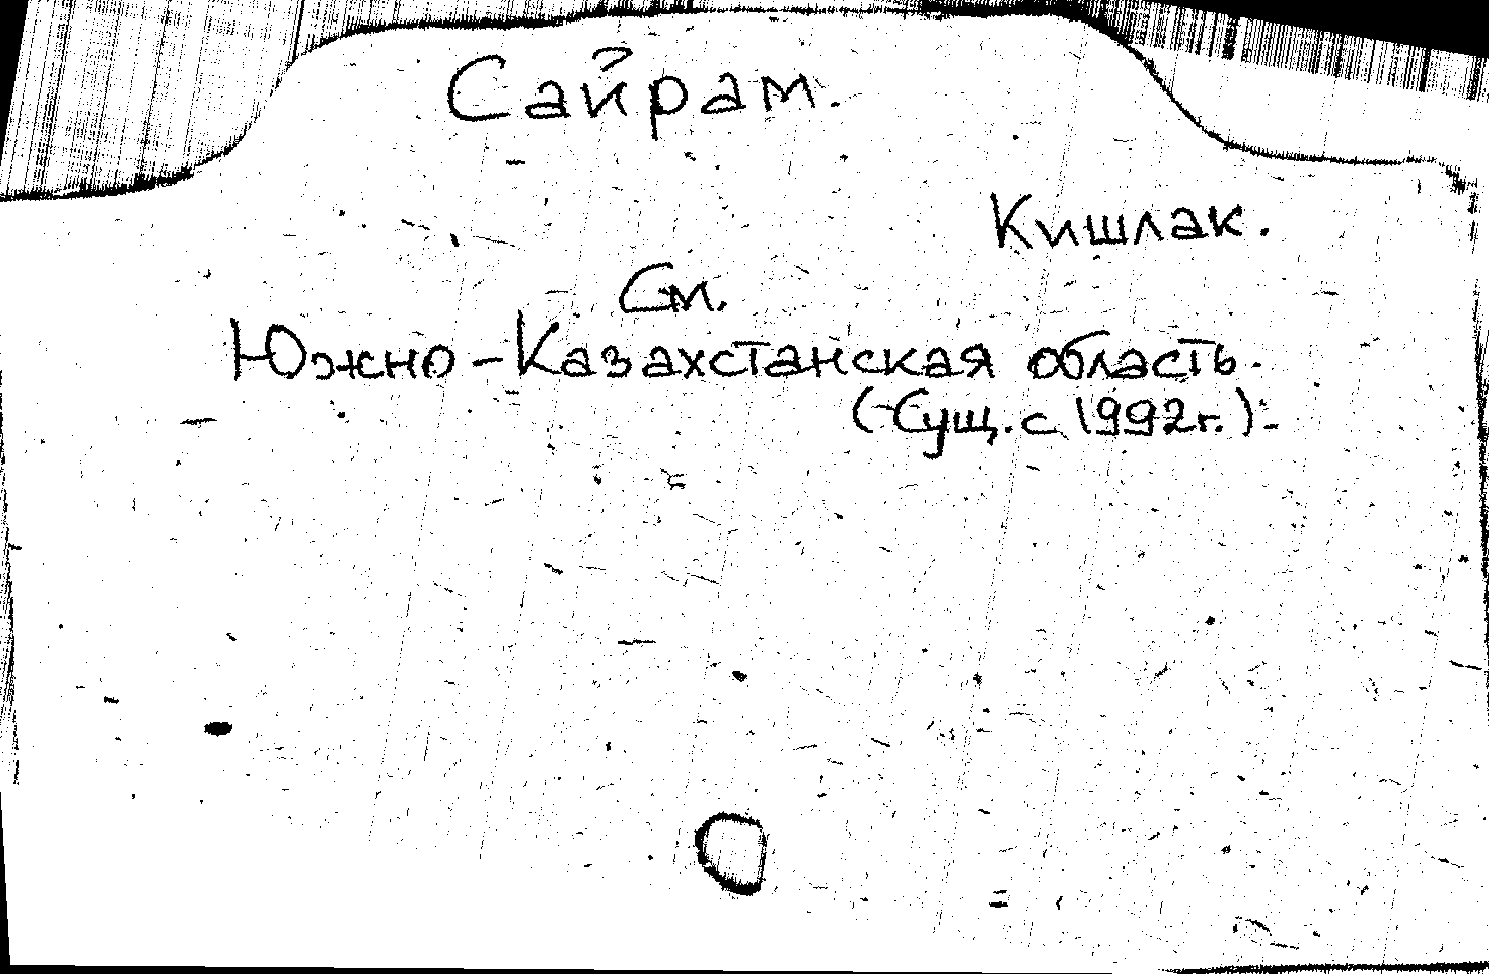 Сайрам.
Кишлак.
См.
Южно-Казахстанская область.
(Сущ. с 1992г.).